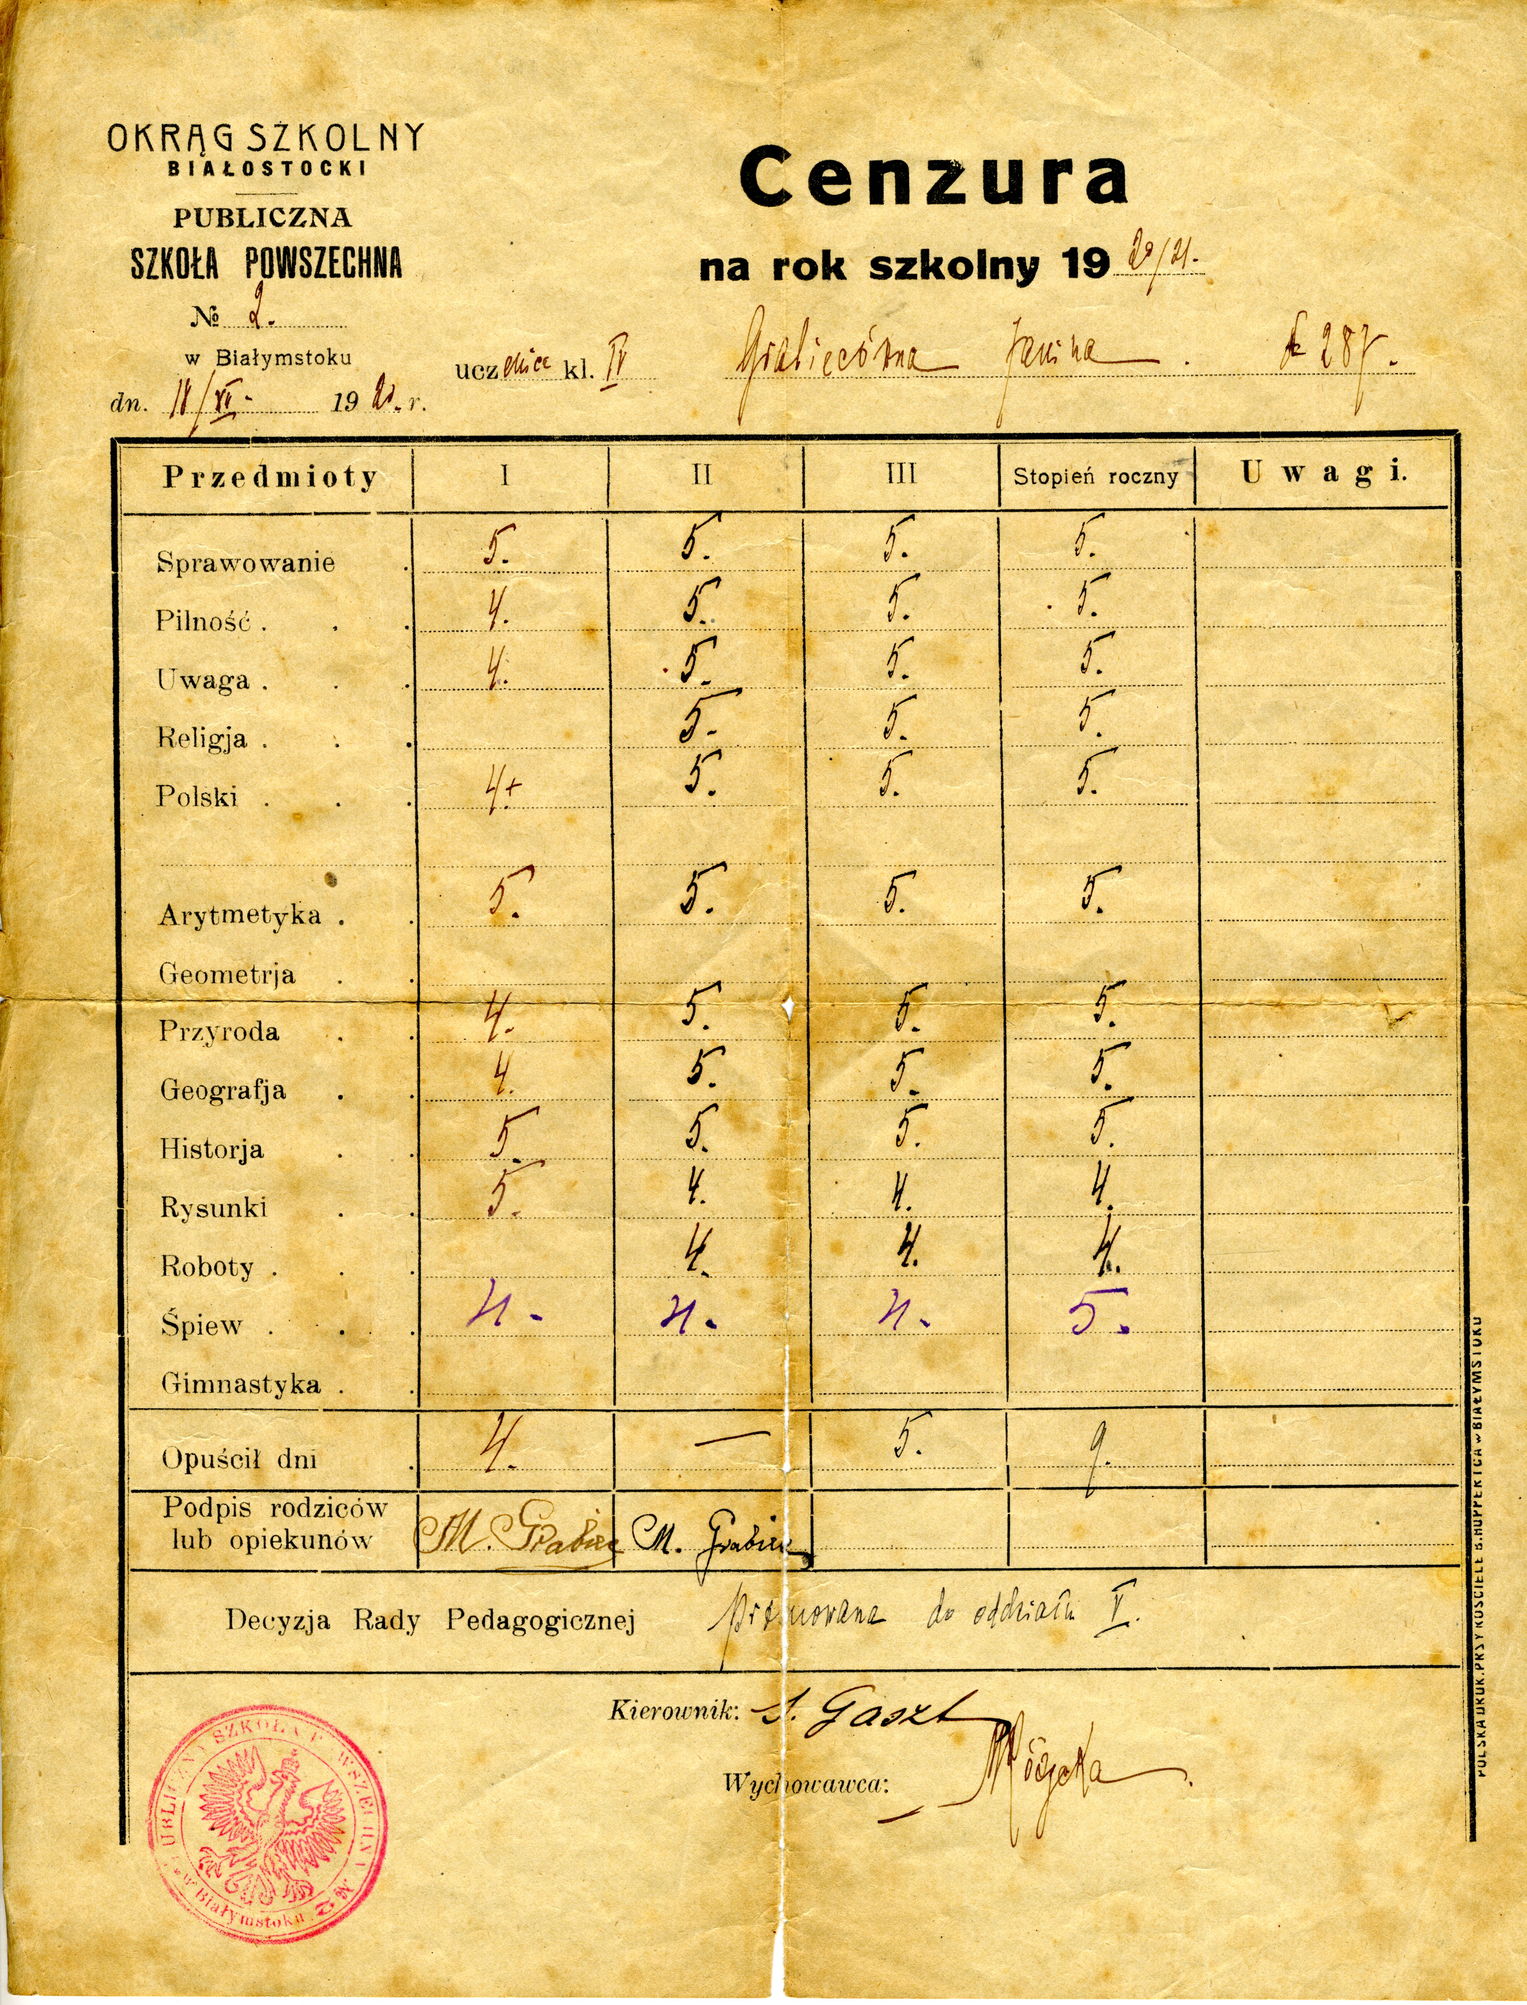 OKRĄG SZKOLNY
BIAŁOSTOCKI
PUBLICZNA
SZKOŁA POWSZECHNA
№ 2.
w Białymstoku
dn. 18/XI - 19 20. r.
Cenzura
na rok szkolny 19 20/21.
uczenica kl. IV Grabięcówna Janina . № 287.
Przedmioty I II III Stopień roczny Uwagi.
Sprawowanie . 5. 5. 5. 5.
Pilność . . . 4. 5. 5. 5.
Uwaga . . . 4. 5. 5. 5.
Religja . . . 5. 5. 5.
Polski . . . 4+ 5. 5. 5.
Arytmetyka . . 5. 5. 5. 5.
Geometrja . .
Przyroda . . 4. 5. 5. 5.
Geografja . . 4. 5. 5. 5.
Historja . . 5. 5. 5. 5.
Rysunki . . 5. 4. 4. 4.
Roboty . . . 4. 4. 4.
Śpiew . . . 4. 4. 4. 5.
Gimnastyka . .
Opuścił dni . 4. — 5. 9.
Podpis rodziców
lub opiekunów M. Grabiec M. Grabiec
Decyzja Rady Pedagogicznej promowana do oddziału V.
Kierownik: S. Gaszt
Wychowawca:
PUBLICZNA SZKOŁA POWSZECHNA № 2
w Białymstoku
POLSKA DRUK. PRZY KOŚCIELE B. HUPPERTCA w BIAŁYMSTOKU